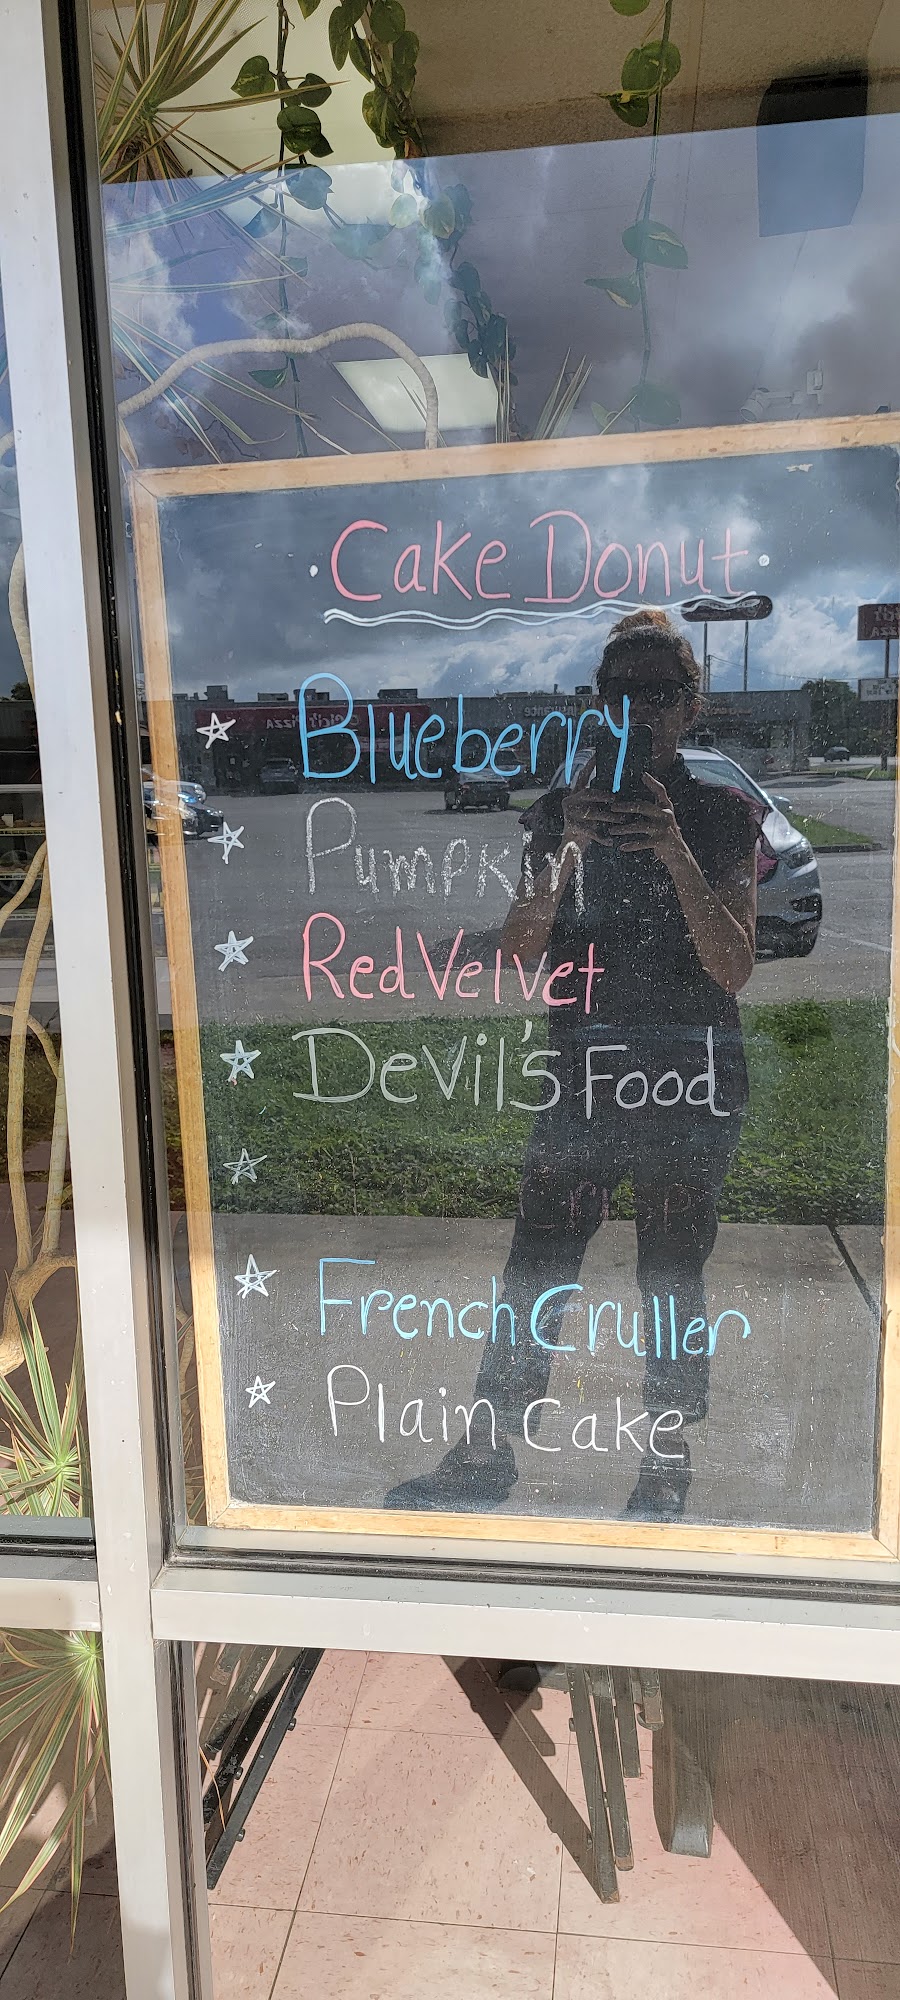 Cake Donut
Blueberry
Pumpkin
Red Velvet
Devil's Food
French Cruller
Plain Cake